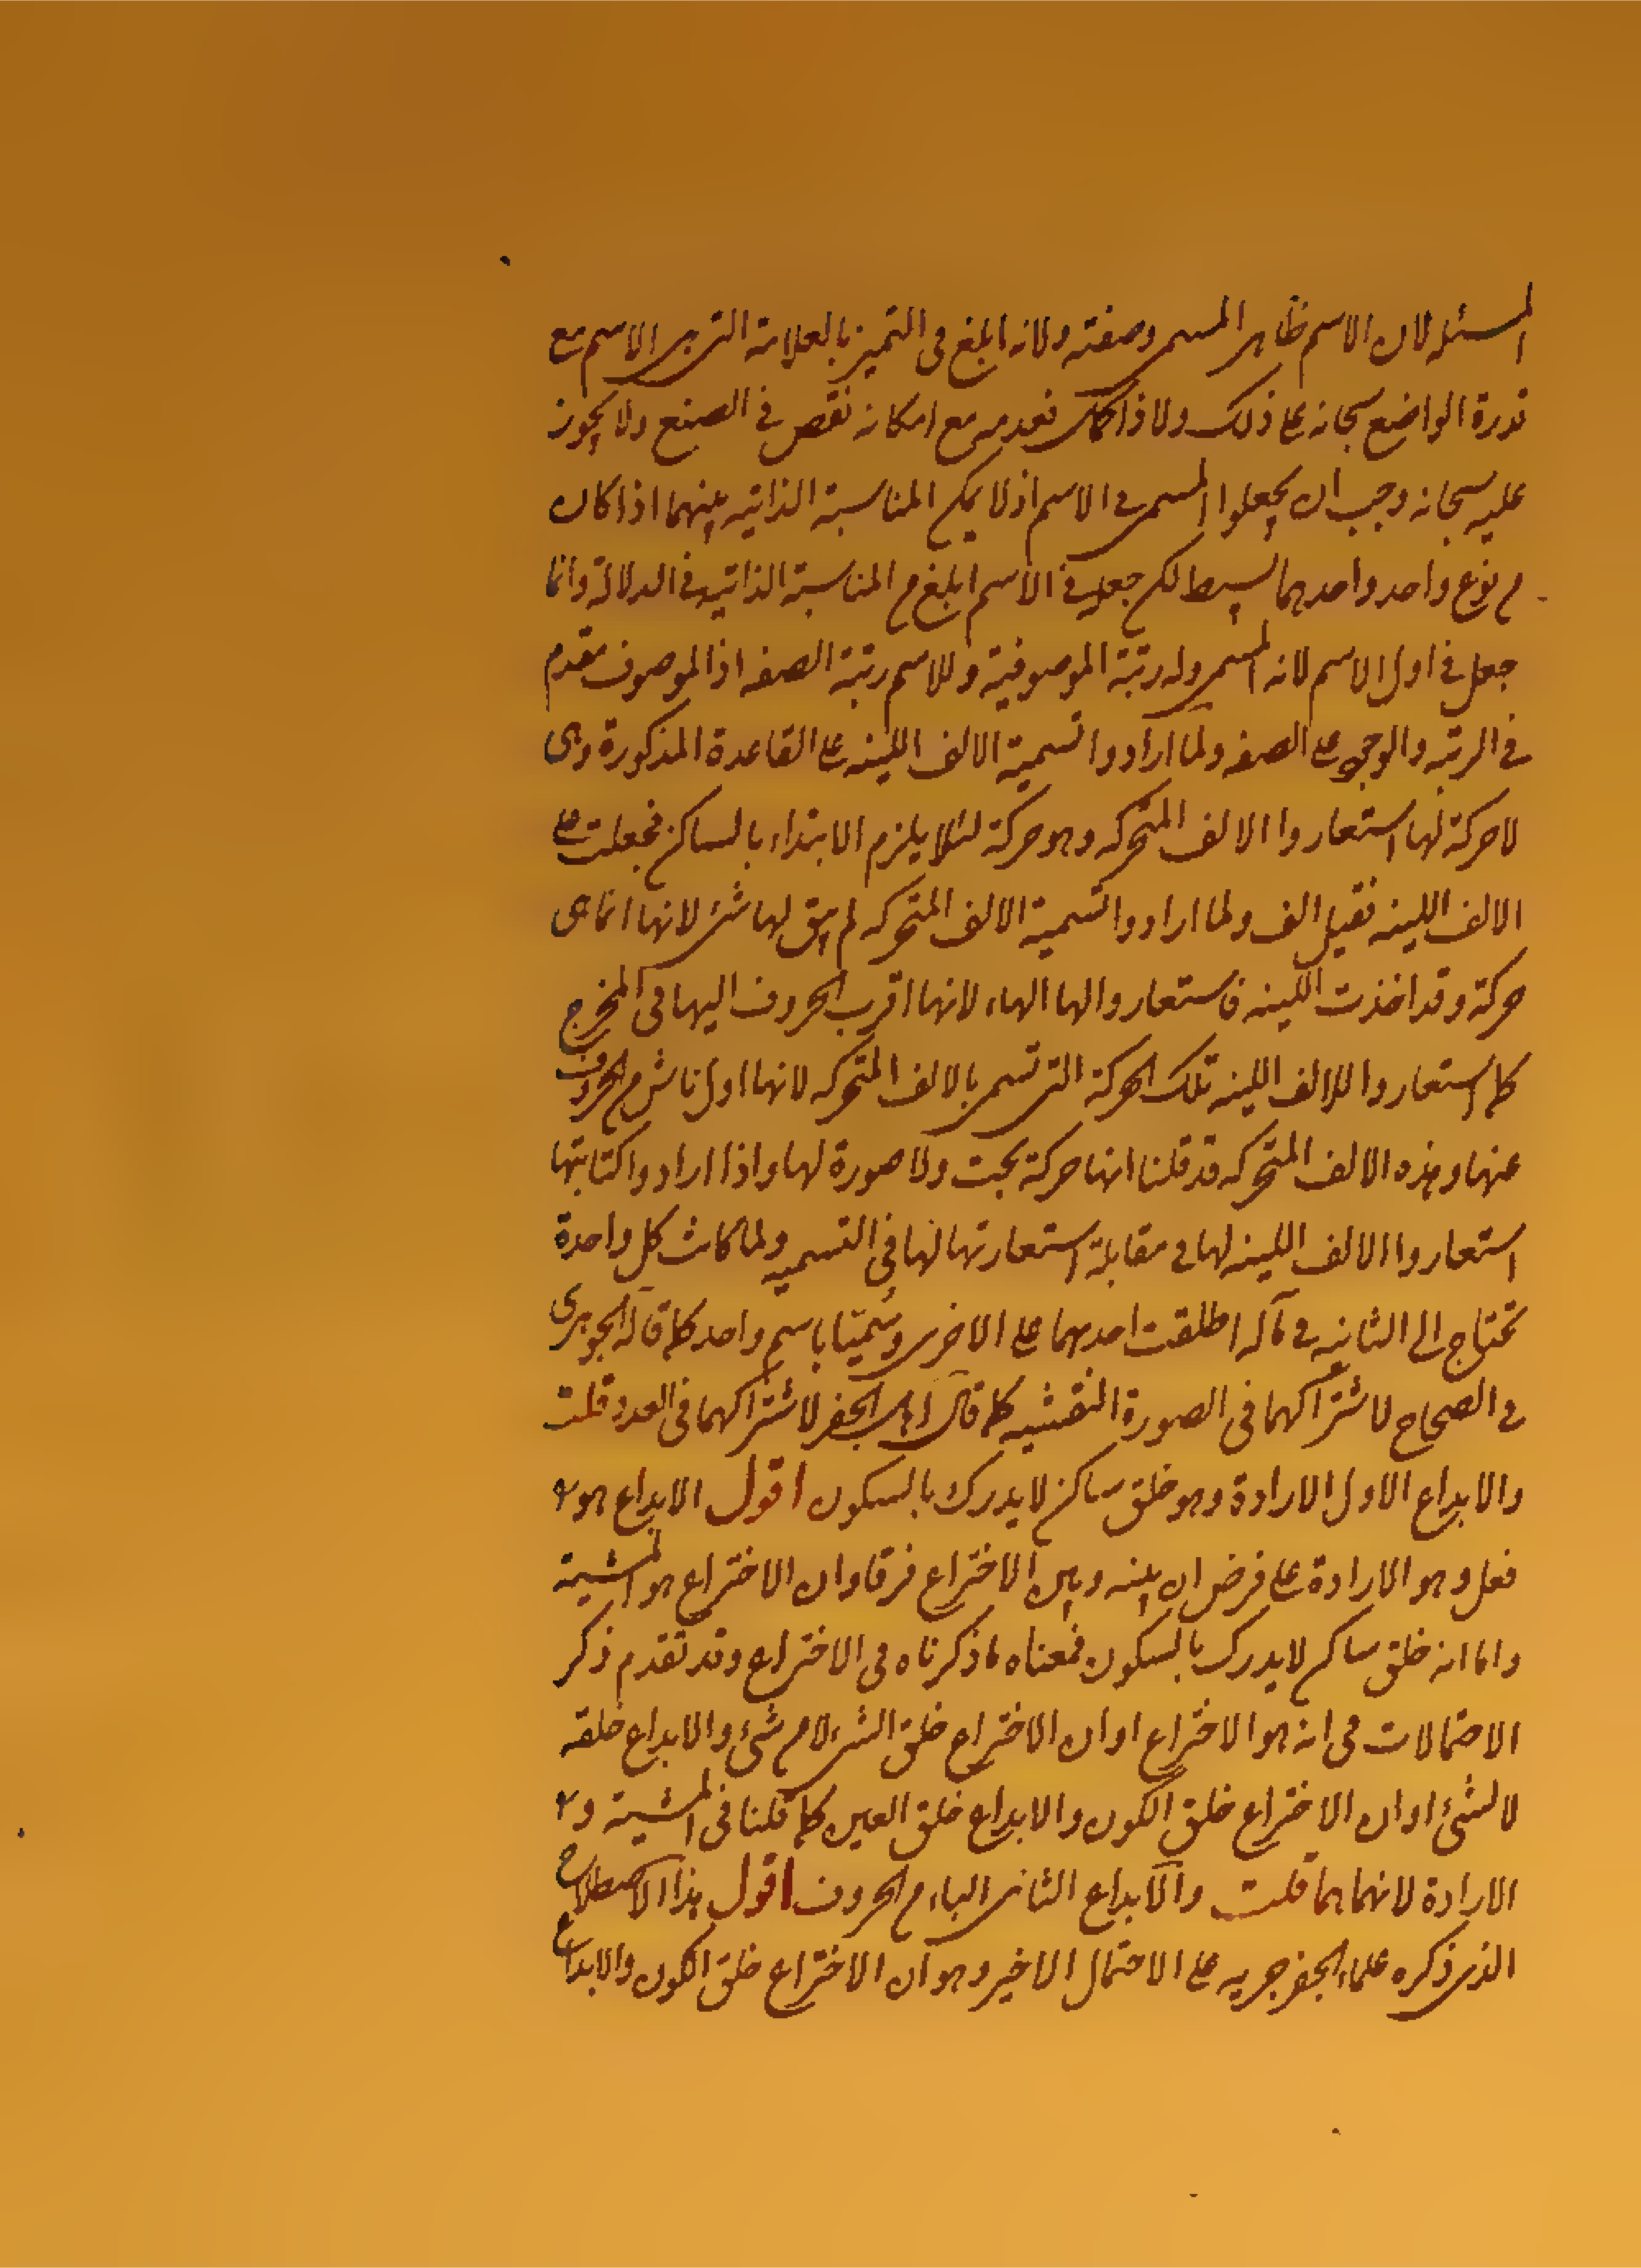 المسئله لان الاسم ظاهر المسمى وصفته ولانه ابلغ فى التميز بالعلامة التى هى الاسم مع
قدرة الواضع سبحانه على ذلك ولا ذا كك فعدمه مع امكانه نقص فى الصنع ولا يجوز
عليه سبحانه وجب ان يجعلوا المسمى فى الاسم اذ لا يكم المناسبة الذاتيه بينهما اذا كان
م نوع واحد واحدهما بسيط لكم جعله فى الاسم ابلغ م المناسبة الذاتيه فى الدلالة وانما
جعل فى اول الاسم لانه المسمى وله رتبة الموصوفية وللاسم رتبة الصفه اذ الموصوف مقدم
فى الرتبه والوجود على الصفه ولما ارادوا تسمية الالف اللينه على القاعدة المذكورة وهى
لا حركة لها استعاروا الالف المتحركه وهو حركة لئلا يلزم الابتداء بالساكن فجعلت على
الالف اللينه فقيل الف ولما ارادوا تسمية الالف المتحركه لم يبق لها شئ لانها انما هى
حركة وقد اخذت اللينه فاستعاروا لها الهاء لانها اقرب الحروف اليها فى المخرج
كما استعاروا للالف اللينه تلك الحركة التى تسمى بالالف المتحركه لانها اول ناش م الحروف
عنها وهذه الالف المتحركه قد قلنا انها حركة بحت ولا صورة لها واذا ارادوا كتابتها
استعاروا الالف اللينه لها فى مقابلة استعارتها لها فى التسميه ولما كانت كل واحدة
تحتاج الى الثانيه فى ماله اطلقت احديهما على الاخرى وسُمّيتا باسم واحد كما قاله الجوهرى
فى الصحاح لاشتراكهما فى الصورة النقشيه كما قال اهل الجفر لاشتراكهما فى العدد قلت
والابداع الاول الارادة وهو خلق ساكن لا يدرك بالسكون اقول الابداع هو
فعل وهو الارادة على فرض ان بينه وبين الاختراع فرقا وان الاختراع هو المشية
واما انه خلق ساكن لا يدرك بالسكون فمعناه ما ذكرناه فى الاختراع وقد تقدم ذكر
الاحتمالات فى انه هو الاختراع او ان الاختراع خلق الشئ لا م شئ والابداع خلقه
لا لشئ او ان الاختراع خلق الكون والابداع خلق العين كما قلنا فى المشية و
الارادة لانهما هما قلت والابداع الثانى الباء م الحروف اقول هذا الاصطلاح
الذى ذكره علماء الجفر جريه على الاحتمال الاخير وهو ان الاختراع خلق الكون والابداع